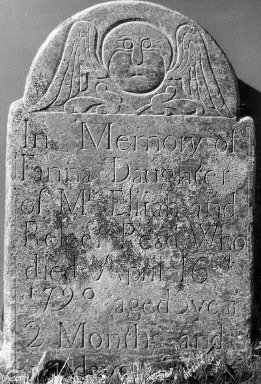 In Memory of
Fanna Daughter
of Mr Elijah and
Rebeck Who
died April 16th
179 aged year
2 Months and